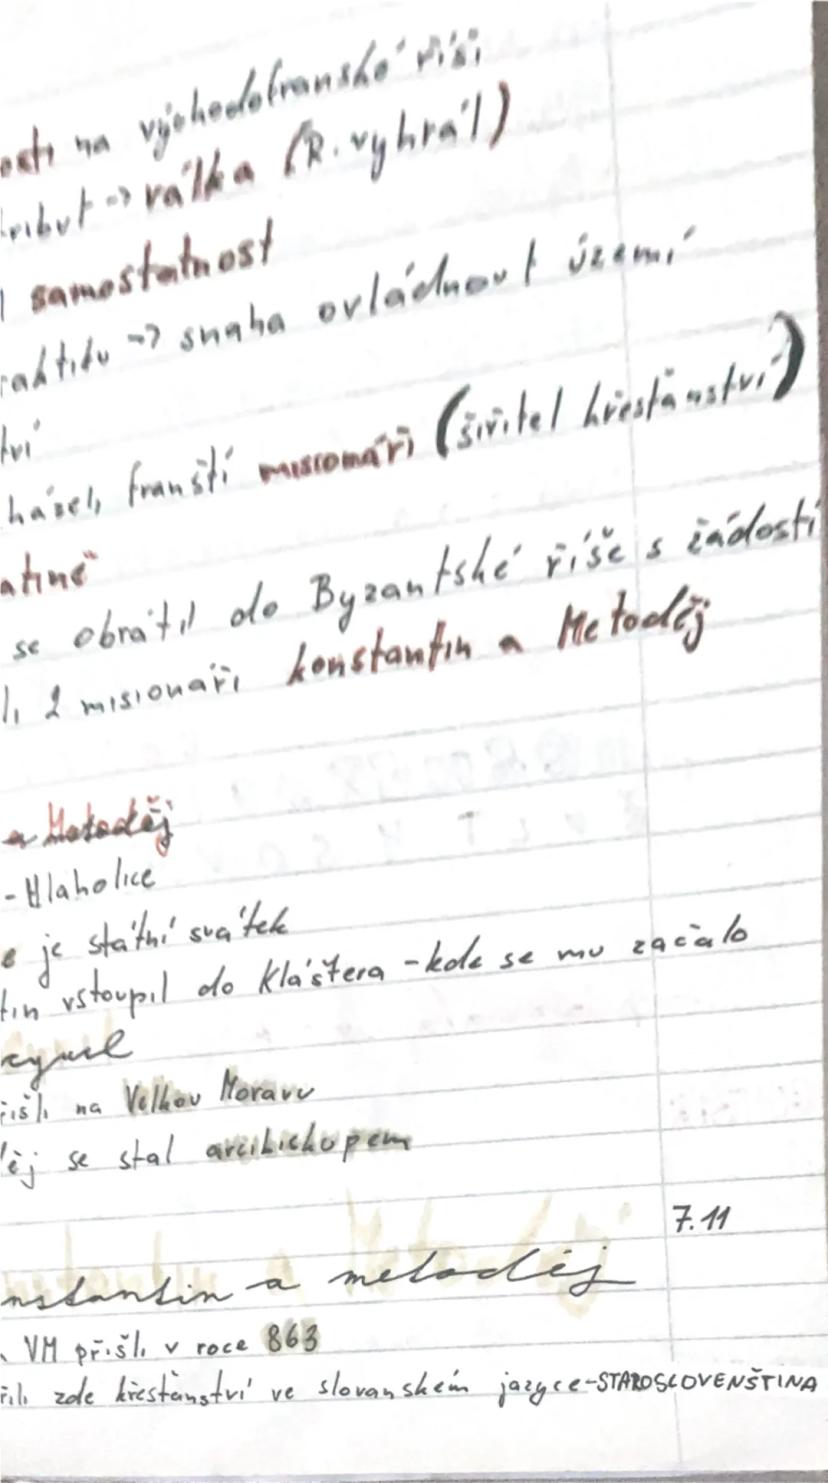 osti na východofranské říši
tribut -> válka (R. vyhrál)
samostatnost
-> snaha ovládnout území
tví
házeli franští misionáři (šiřitel křesťanství)
atině
se obrátil do Byzantské říše s žádostí
li 2 misionáři konstantin a Metoděj
a Metoděj
- Hlaholice
je státní svátek
tin vstoupil do kláštera - kde se mu začalo
cyril
řišli na Velkou Moravu
ěj se stal arcibiskupem
7.11
nstantin a metoděj
VM přišli v roce 863
řili zde křesťanství ve slovanském jazyce - STAROSLOVENŠTINA